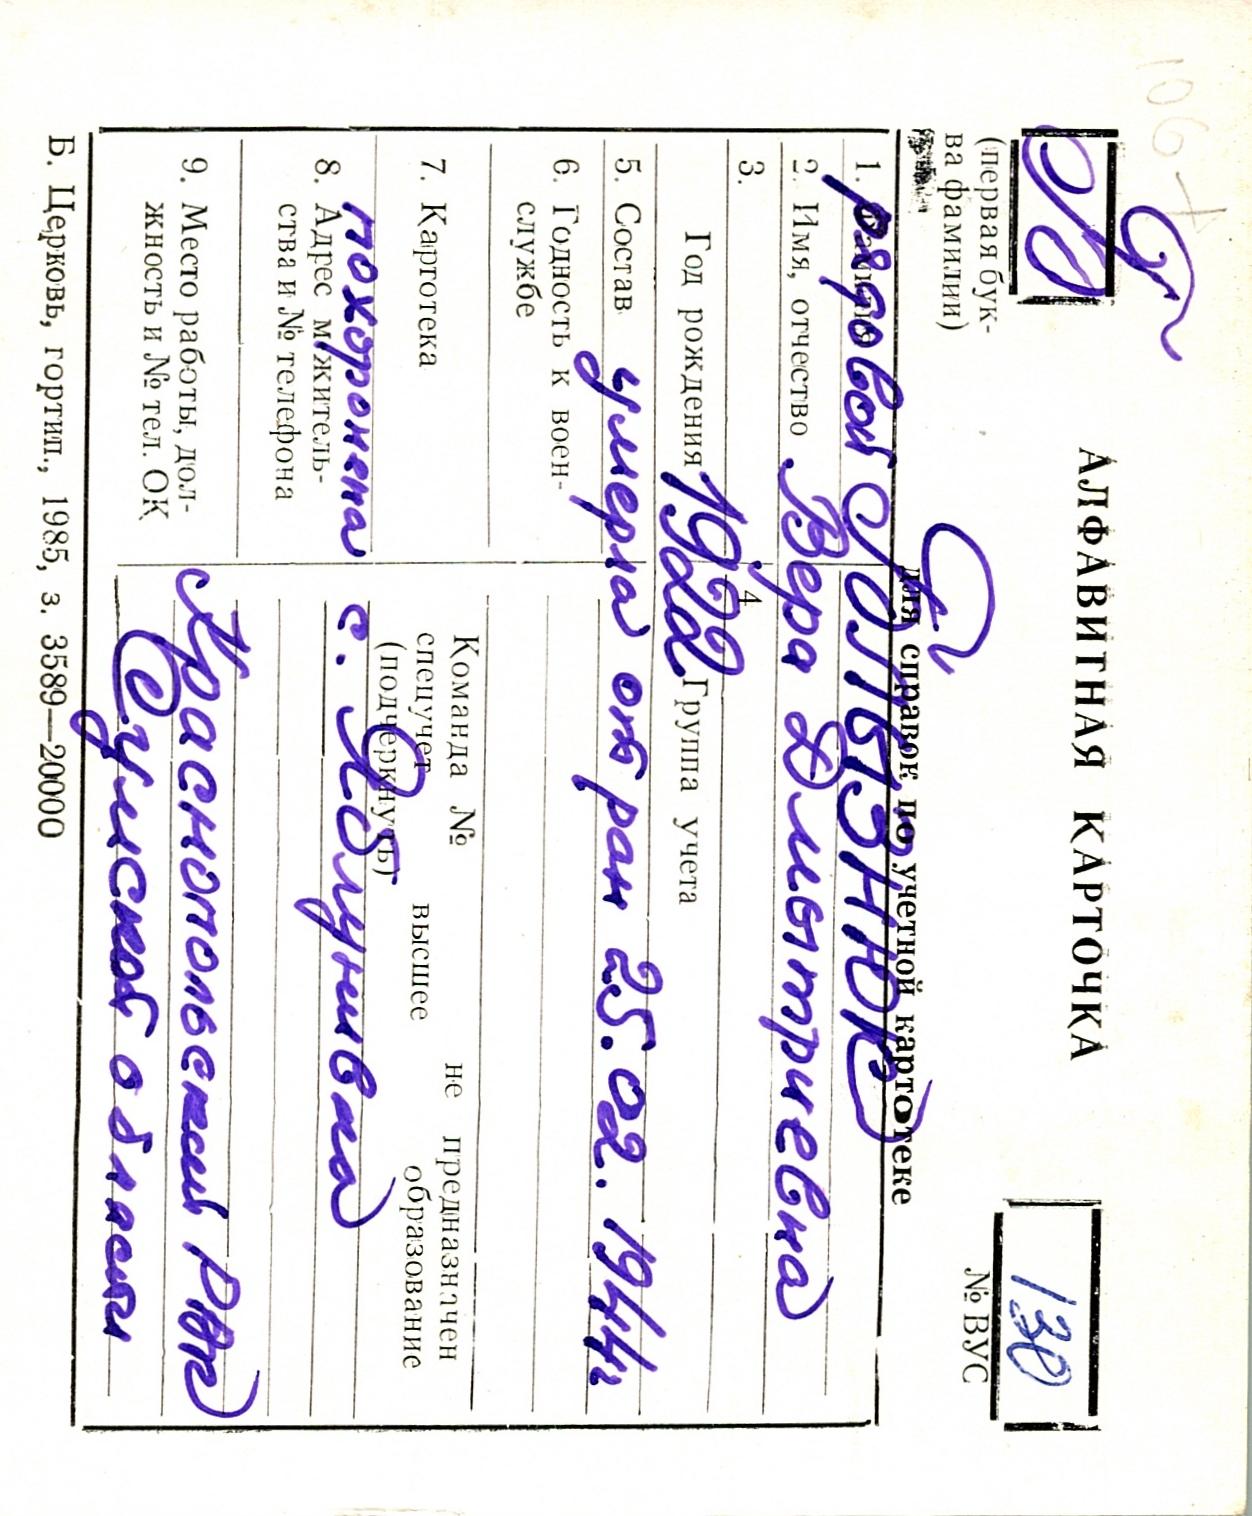 106 х
Г
АЛФАВИТНАЯ КАРТОЧКА
130
(первая бук-
ва фамилии)
№ ВУС
для справок по учетной картотеке
1. Фамилия рядовой ГОЛЫЗНЮК
2. Имя, отчество Вера Дмытриевна
3.
Год рождения 1922
4.
Группа учета
5. Состав умерла от ран 25.02.1944г
6. Годность к воен-
службе
7. Картотека
Команда № не предназначен
спецучет высшее образование
(подчеркнуть)
похоронена с. Яблунивка
8. Адрес м/житель-
ства и № телефона
9. Место работы, дол-
жность и № тел. ОК
Краснопольский РВК
Сумской области
Б. Церковь, гортип., 1985, з. 3589—20000